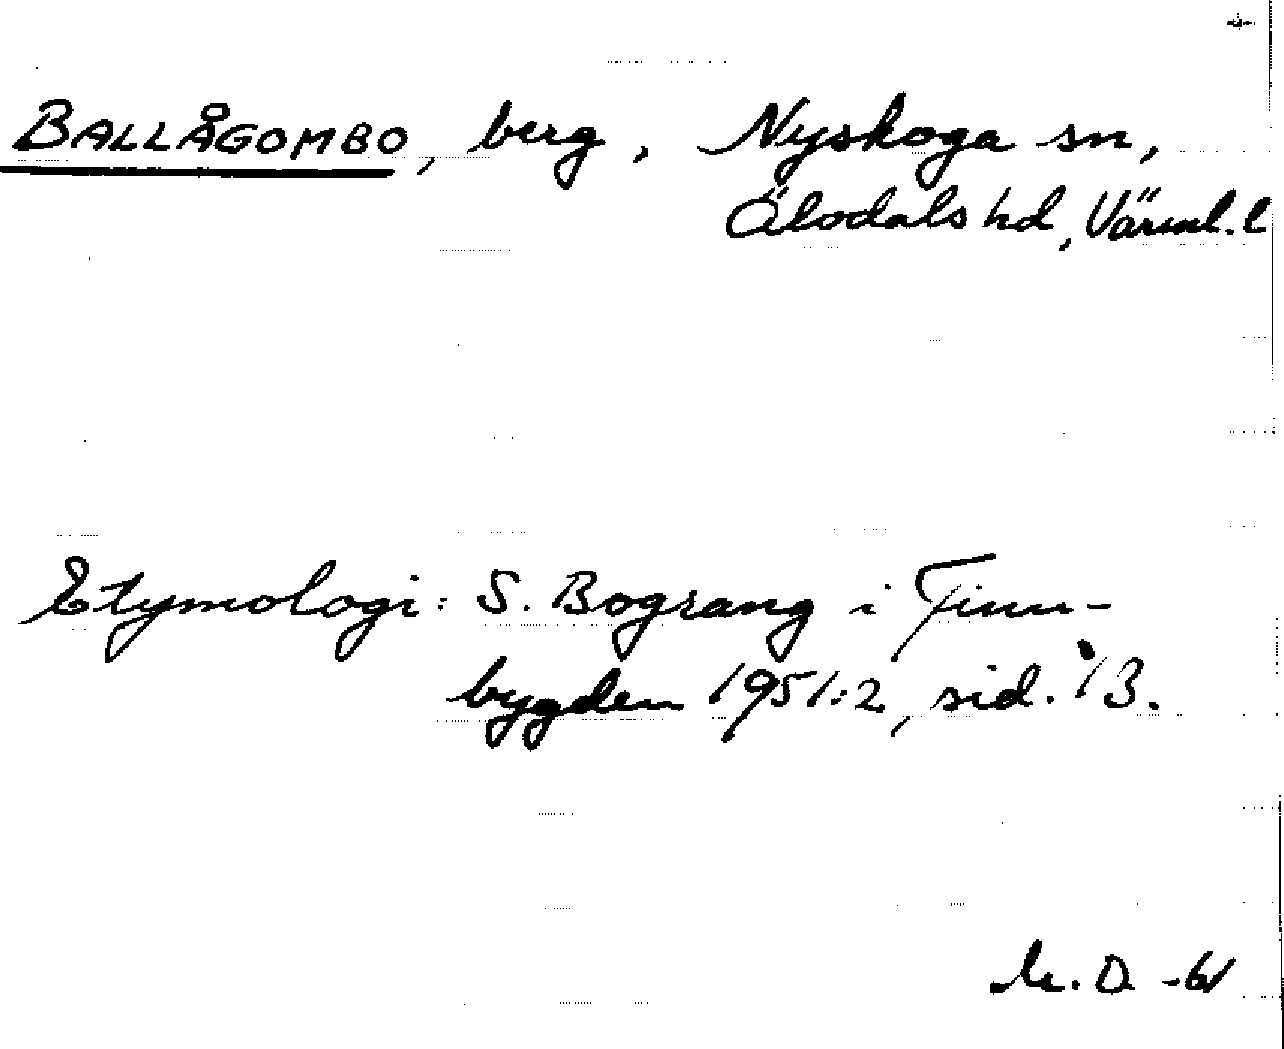 BALLÅGOMBO, berg, Nyskoga sn,
Älvdals hd, Värml. l
Etymologi: S. Bograng i Finn-
bygden 1951:2, sid. 13.
M. D -61